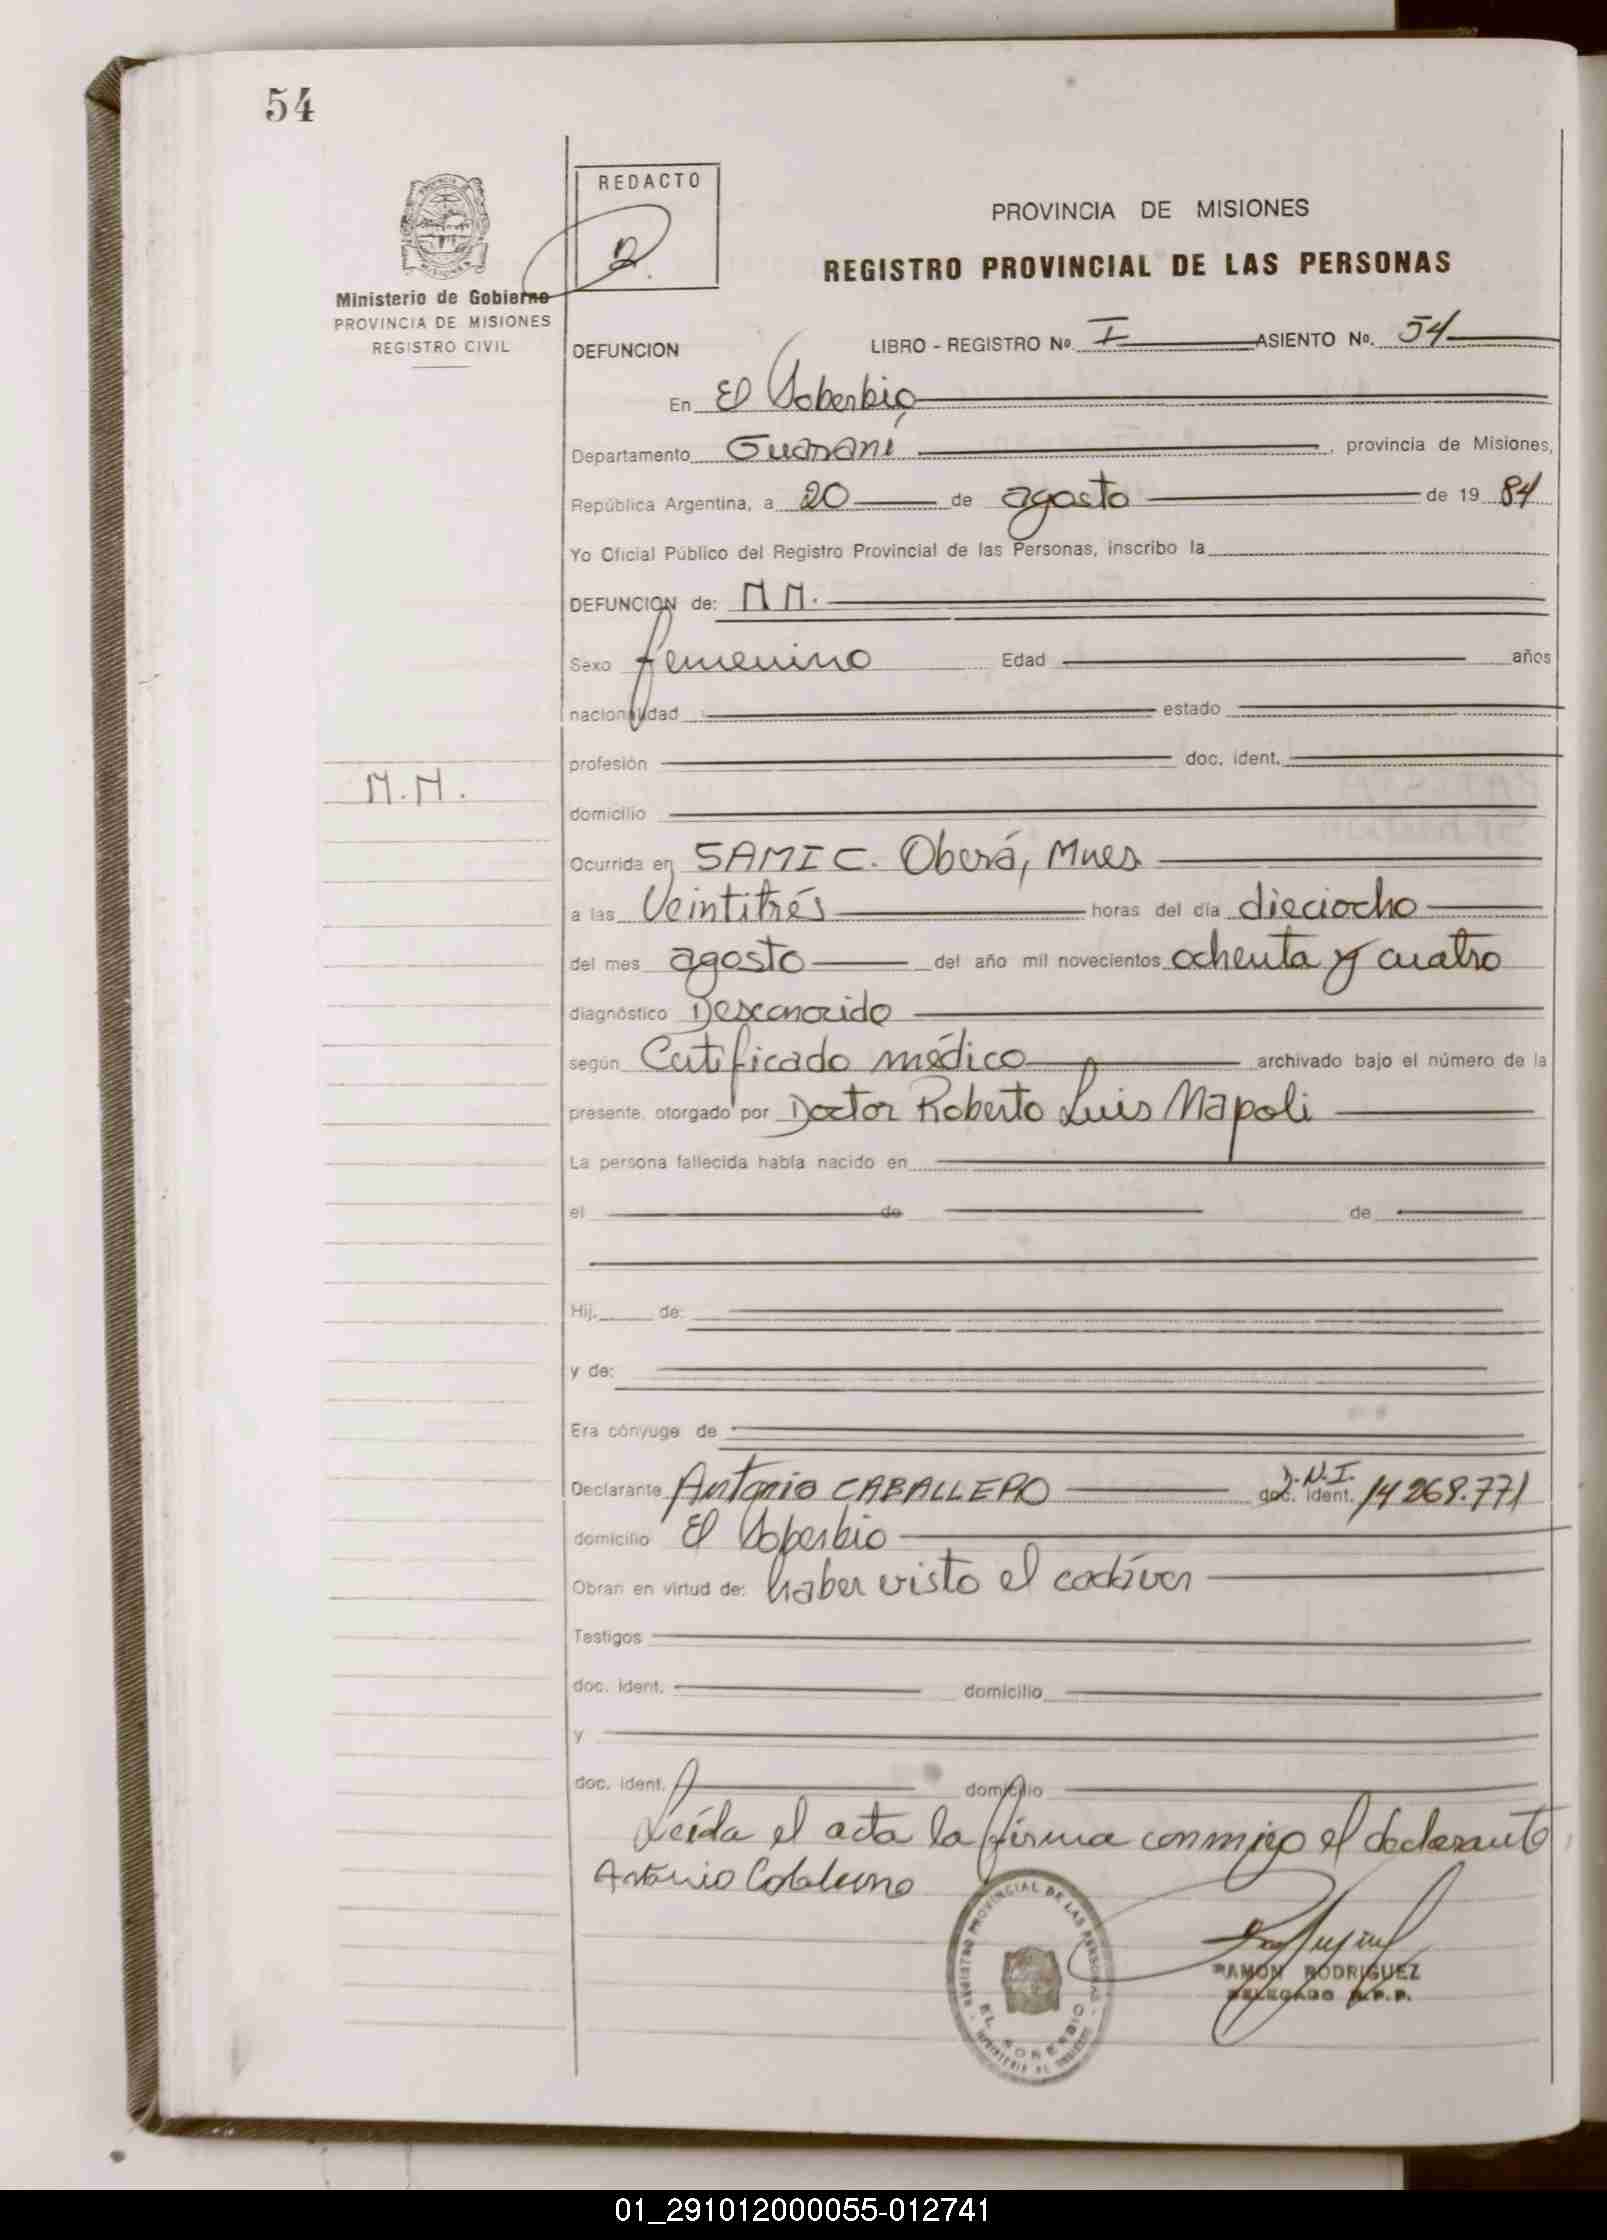 54
REDACTO
PROVINCIA DE MISIONES
REGISTRO PROVINCIAL DE LAS PERSONAS
Ministerio de Gobierno
PROVINCIA DE MISIONES
REGISTRO CIVIL
DEFUNCION LIBRO - REGISTRO Nº. I ASIENTO Nº. 54
En El Soberbio
Departamento Guaraní, provincia de Misiones,
República Argentina, a 20 de agosto de 19 84
Yo Oficial Público del Registro Provincial de las Personas, inscribo la
DEFUNCION de: N N.
Sexo femenino Edad años
nacionalidad estado
profesión doc. ident.
N.N.
domicilio
Ocurrida en SAMIC. Oberá, Mnes
a las Veintitrés horas del día dieciocho
del mes agosto del año mil novecientos ochenta y cuatro
diagnóstico Desconocido
según Certificado médico archivado bajo el número de la
presente, otorgado por Doctor Roberto Luis Napoli
La persona fallecida había nacido en
el de de
Hij. de:
y de:
Era cónyuge de
Declarante Antonio CABALLERO D.N.I. doc. ident. 14269.771
domicilio El Soberbio
Obran en virtud de: haber visto el cadáver
Testigos
doc. ident. domicilio
y
doc. ident. domicilio
Leída el acta la firma conmigo el declarante
Antonio
REGISTRO PROVINCIAL DE LAS PERSONAS
EL SOBERBIO
RAMON RODRIGUEZ
DELEGADO R.P.P.
01_291012000055-012741